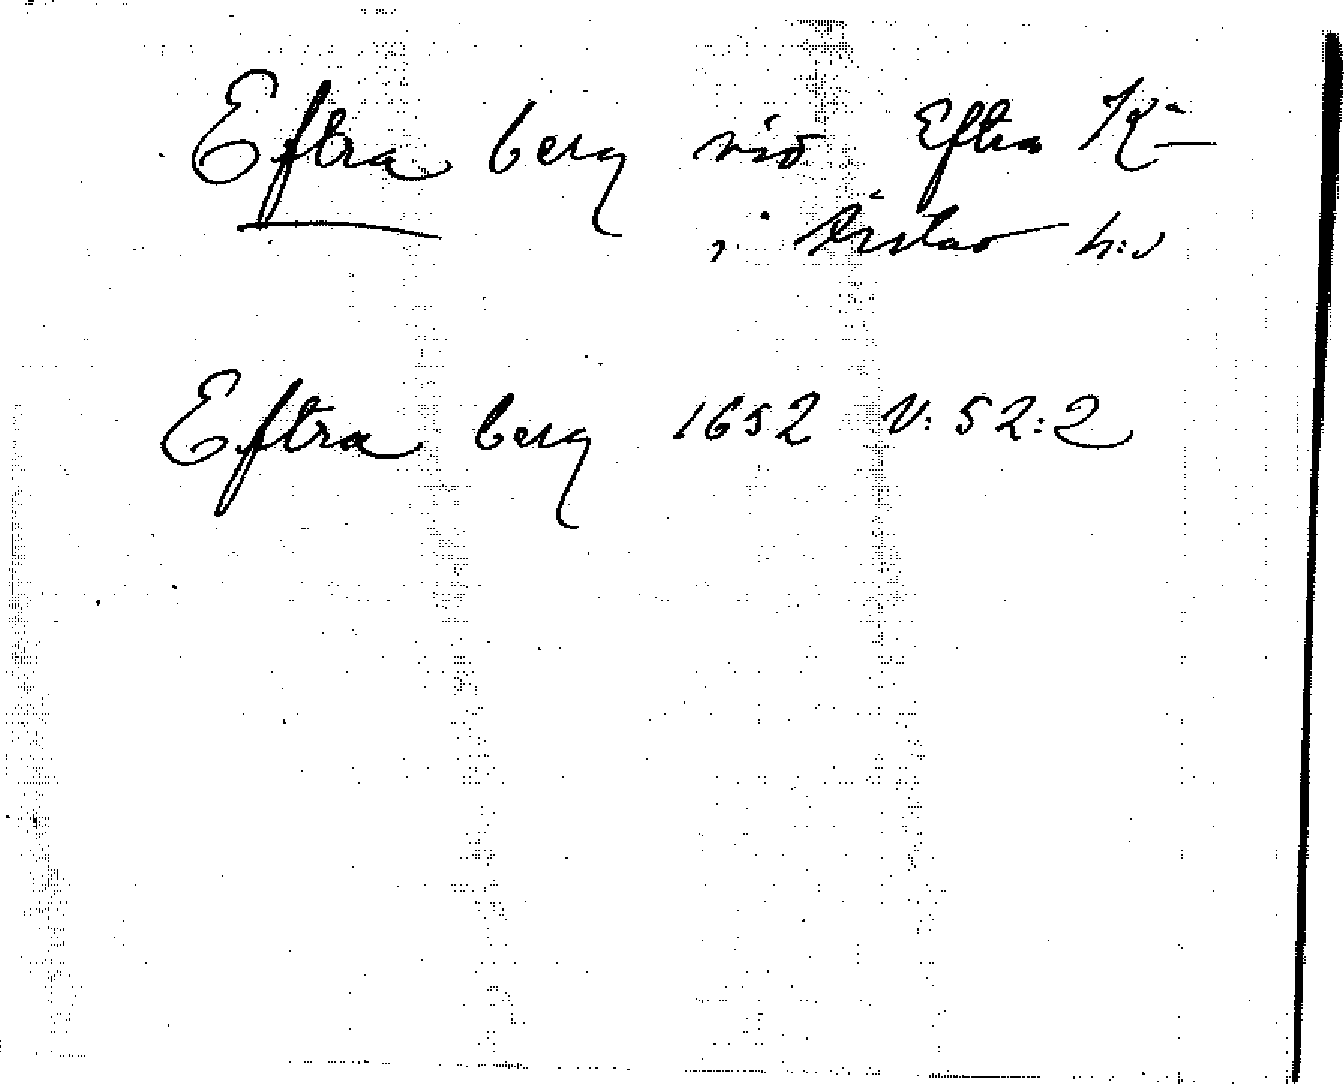 Eftra berg vid Eftra Ka
i Årstad h:d
Eftra berg 1652 V: 52:2